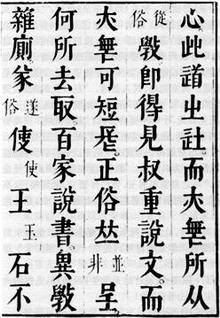 心此道㞢社而夶無所从
從俗斆即得見叔重說文。而
夶無可短。是正俗丛並非呈。
何所去取。百家說書。異斆
雜廁。㒸遂俗使使王玉石不